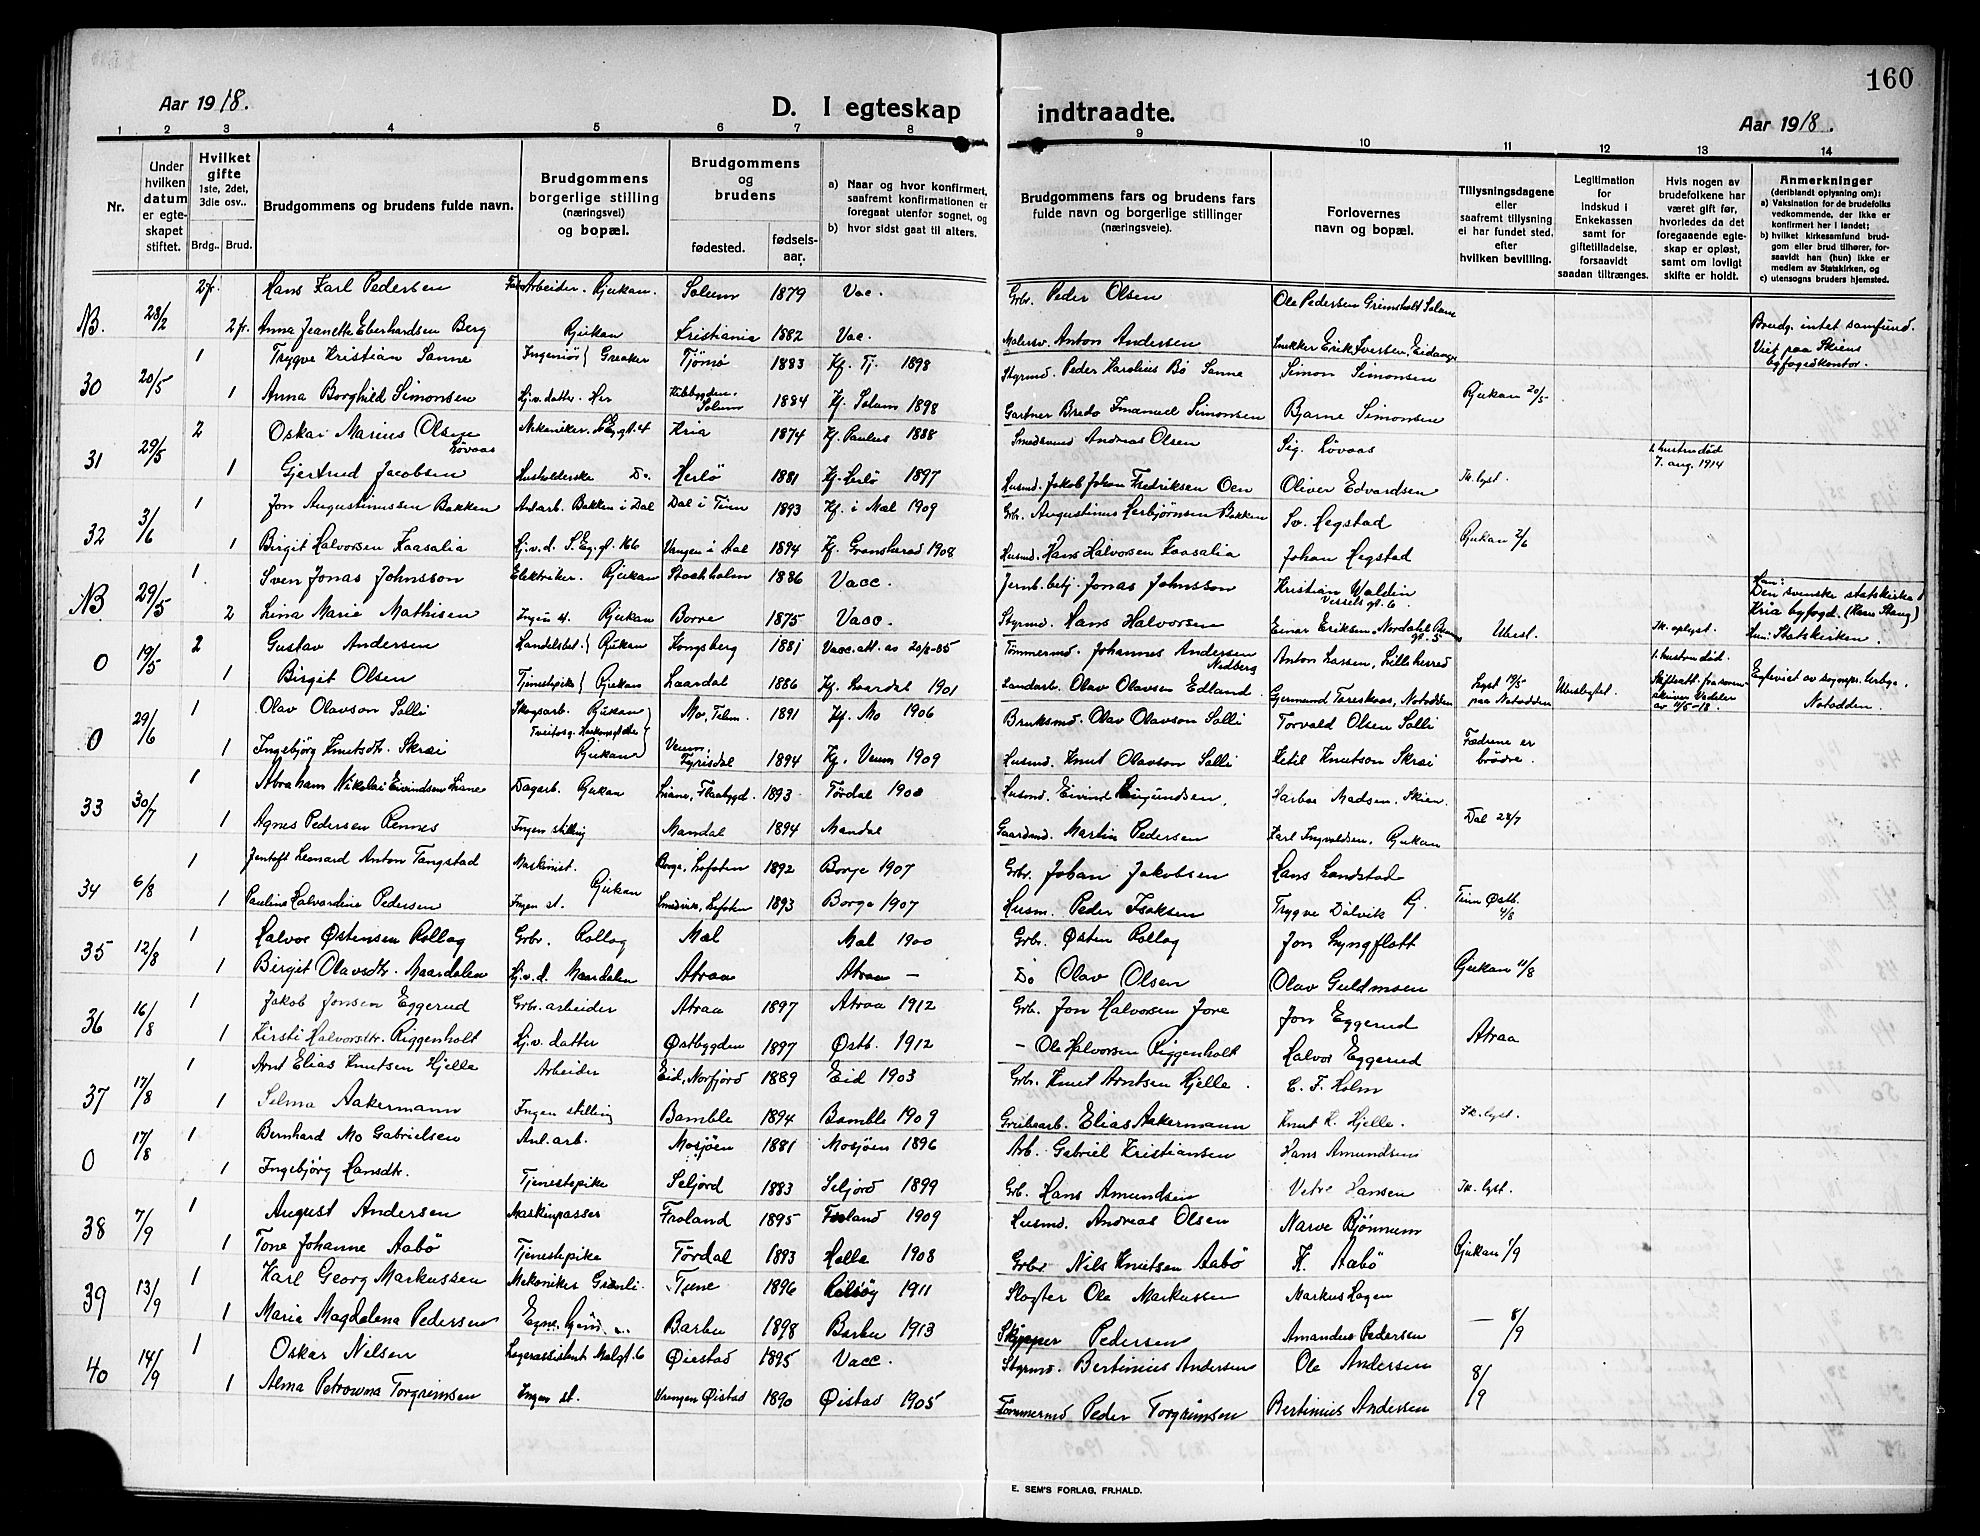 160
Aar 1918.
D. I egteskap indtraadte.
Aar 1918.
1 2 3 4 5 6 7 8 9 10 11 12 13 14
Nr.
Under hvilken datum er egteskapet stiftet.
Hvilket gifte 1ste, 2det, 3die osv..
Brdg. Brud.
Brudgommens og brudens fulde navn.
Brudgommens borgerlige stilling (næringsvei) og bopæl.
Brudgommens og brudens
fødested. fødselsaar.
a) Naar og hvor konfirmert, saafremt konfirmationen er foregaat utenfor sognet, og
b) hvor sidst gaat til alters.
Brudgommens fars og brudens fars fulde navn og borgerlige stillinger (næringsveie).
Forlovernes navn og bopæl.
Tillysningsdagene eller saafremt tillysning ei har fundet sted, efter hvilken bevilling.
Legitimation for Indskud i Enkekassen samt for giftetilladelse, forsaavidt saadan tiltrænges.
Hvis nogen av brudefolkene har været gift før, hvorledes da det foregaaende egteskap er opløst, samt om lovligt skifte er holdt.
Anmerkninger (deriblandt oplysning om):
a) Vaksination for de brudefolks vedkommende, der ikke er konfirmert her i landet;
b) hvilket kirkesamfund brudgom eller brud tilhører, forsaavidt han (hun) ikke er medlem av Statskirken, og
c) utensogns bruders hjemsted.
NB. 28/2 2 fr. Hans Karl Pedersen Arbeider. Rjukan. Solum 1879 Vac. Grb. Peder Olsen Ole Pedersen Grimsholt Solum
2 fr. Anna Jeanette Eberhardsen Berg Rjukan Kristiania 1882 Vac. Malersv. Anton Andersen Snekker Erik Iversen, Eidanger Brudg. intet samfund. Viet paa Skiens byfogedkontor.
30 20/5 1 Trygve Kristian Sanne Ingeniør Greaker Tjømø 1883 Kf. Tj. 1898 Styrmd. Peder Karolius Bø Sanne Simon Simonsen
1 Anna Borghild Simonsen Hj.v. datter. Her Solum 1884 Kf. Solum 1898 Gartner Bredo Imanuel Simonsen Bjarne Simonsen Rjukan 20/5
31 29/5 2 Oskar Marius Olsen Løvaas Mekaniker. Kria 1874 Kf. Paulus 1888 Andreas Olsen Sig. Løvaas 1. hustru død 7. aug. 1914
1 Gjertrud Jacobsen Husholderske Do. Herlø 1881 Kf. Herlø 1897 Husmd. Jakob Johan Fredriksen Oen Oliver Edvardsen Ik. lyst.
32 3/6 1 Jon Augustinussen Bakken Anl.arb. Bakken i Dal Dal i Tinn 1893 Kf. i Mæl 1909 Grb. Augustinus Herbjørnsen Bakken Sv. Hegstad
1 Birgit Halvorsen Kaasalia Hj.v.d. S.Eg.gt. 166 Vangen i Aal 1894 Kf. Gransherad 1908 Husmd. Hans Halvorsen Kaasalia Johan Hegstad Rjukan 2/6
NB 29/5 1 Sven Jonas Johnsson Elektriker. Rjukan Stockholm 1886 Vacc. Jernb. betj. Jonas Johnsson Kristian Waldin Vessels gt. 6 Han: Den svenske statskirke
2 Lina Marie Mathisen Rjukan Borre 1875 Vacc. Styrmd. Hans Halvorsen Einar Eriksen, Nordahl Bruns gt. 5 Utest. Ik. oplyst. Kria byfogd. (Hans Stang) Hun: Statskirken.
0 19/5 2 Gustav Andersen Handelsbet. Rjukan Kongsberg 1881 Vacc. att. av 20/8-85 Tømmermd. Johannes Andersen Nedberg Anton Larsen, Lilleherred 1. hustru død.
1 Birgit Olsen Tjenestepike Rjukan Laardal 1886 Kf. Laardal 1901 Landarb. Olav Olavsen Edland Gjermund Tareskaas, Notodden Lyst 19/5 paa Notodden Skifteatt. fra sorenskriver av 11/5-18. Notodden.
0 29/6 1 Olav Olavson Solli Skogsarb. Rjukan Mo, Telm. 1891 Kf. Mo 1906 Bruksmd. Olav Olavson Solli Torvald Olsen Solli
1 Ingebjørg Knutsdtr. Skrei Rjukan Veum, Fyrisdal 1894 Kf. Veum 1909 Husmd. Knut Olavson Solli Ketil Knutson Skrei Fædrene er brødre.
33 30/7 1 Abraham Nikolai Eivindsen Liane Dagarb. Rjukan Liane, Flaabygd. 1893 Tørdal 1908 Husmd. Eivind Harbor Madsen. Skien
1 Agnes Pedersen Rennes Ingen stilling Mandal 1894 Mandal Gaardmd. Martin Pedersen Karl Ingvaldsen, Rjukan Dal 28/7
34 6/8 1 Jentoft Leonard Anton Tangstad Maskinist. Rjukan Borge, Lofoten 1892 Borge 1907 Grb. Johan Jakobsen Hans Landstad
1 Pauline Halvardine Pedersen Ingen st. Smedvik, Lofoten 1893 Borge 1907 Husm. Peder Isaksen Trygve Dalvik Rj. Tinn Østb. 4/8
35 12/8 1 Halvor Østensen Rollag Grbr. Rollag Mæl Mæl 1900 Grb. Østen Rollag Jon Lyngflatt
1 Birgit Olavsdtr. Maardalen Hj.v.d. Maardalen Atraa Atraa — Do Olav Olsen Olav Guldmsen Rjukan 11/8
36 16/8 1 Jakob Jonsen Eggerud Grbr. arbeider Atraa 1897 Atraa 1912 Grb. Jon Halvorsen Jore Jon Eggerud
1 Kirsti Halvorsdtr. Riggenholt Hj.v. datter Østbygden 1897 Østb. 1912 — Ole Halvorsen Riggenholt Halvor Eggerud Atraa
37 17/8 1 Arnt Elias Knutsen Hjelle Arbeider Eid, Norfjord 1889 Eid 1903 Grb. Knut Arntsen Hjelle. C. F. Holm
1 Selma Aakermann Ingen stilling Bamble 1894 Bamble 1909 Grubearb. Elias Aakermann Knut K. Hjelle. Ik. lyst.
0 17/8 1 Bernhard Mo Gabrielsen Anl. arb. Mosjøen 1881 Mosjøen 1896 Arb. Gabriel Kristiansen Hans Amundsen
1 Ingebjørg Hansdtr. Tjenestepike Seljord 1883 Seljord 1899 Grb. Hans Amundsen Vetre Hansen Ik. lyst.
38 7/9 1 August Andersen Maskinpasser Froland 1895 Froland 1909 Husmd. Andreas Olsen Narve Bjønnum
1 Tone Johanne Aabø Tjenestepike Tørdal 1893 Helle 1908 Grbr Nils Knutsen Aabø K. Aabø Rjukan 1/9
39 13/9 1 Karl Georg Markussen Mekaniker Grønli. Tjene 1896 1911 Slagter Ole Markussen Markus Hagen
1 Marie Magdalena Pedersen Barbu 1898 Barbu 1913 Skipper Pedersen Amandus Pedersen — 8/9
40 14/9 1 Oskar Nilsen Lagerassistent Mælgt. 6 Øiestad 1895 Vacc. Styrmd. Bertinius Andersen Ole Andersen 8/9
1 Alma Petrowna Torgrimsen Ingen st. Vrengen Øistad 1890 Øistad 1905 Tømmermd Peder Torgrimsen Bertinius Andersen
E. SEM'S FORLAG, FR.HALD.